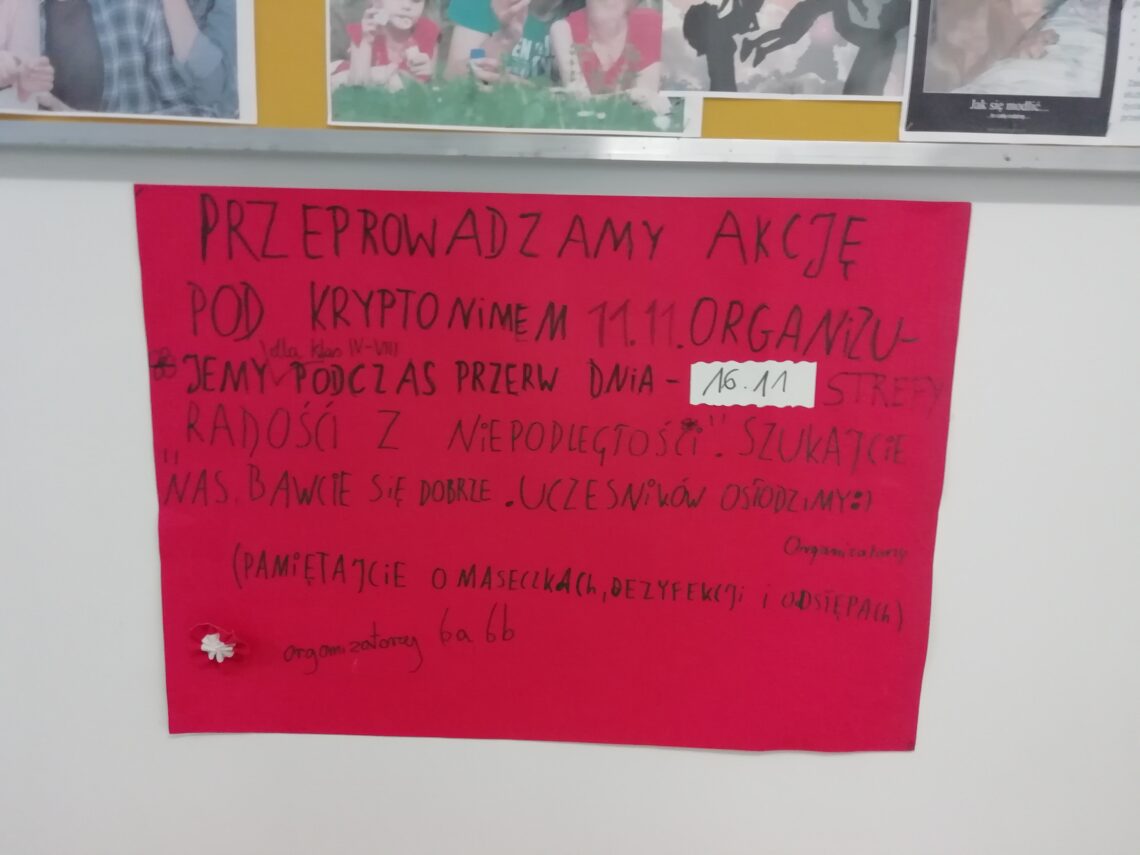 Jak się modlić...
PRZEPROWADZAMY AKCJĘ
POD KRYPTONIMEM 11.11. ORGANIZU-
dla klas IV-VIII
JEMY PODCZAS PRZERW DNIA - 16.11 STREFY
RADOŚCI Z NIEPODLEGŁOŚCI". SZUKAJCIE
"NAS. BAWCIE SIĘ DOBRZE. UCZESNIKÓW OSŁODZIMY:)
Organizatorzy
(PAMIĘTAJCIE O MASECZKACH, DEZYFEKCJI i ODSTĘPACH)
organizatorzy 6a 6b